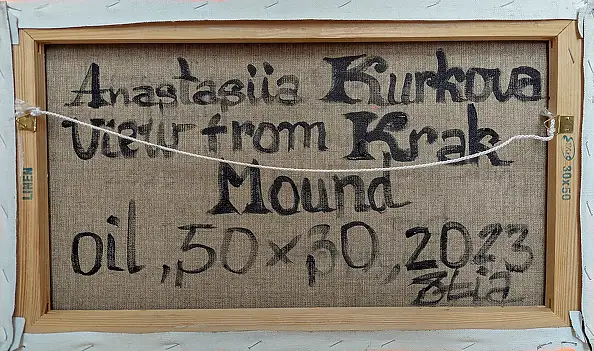 Anastasiia Kurkova
view from Krak
Mound
oil, 50×30, 2023
LINEN
30x50